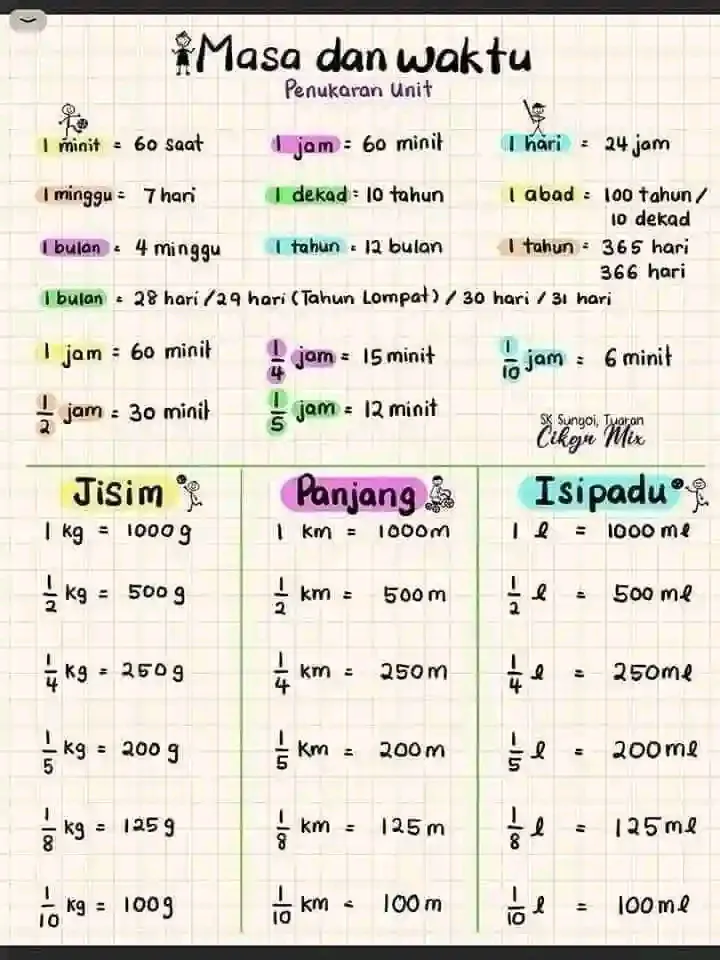 Masa dan waktu
Penukaran Unit
1 minit = 60 saat
1 jam = 60 minit
1 hari = 24 jam
1 minggu = 7 hari
1 dekad = 10 tahun
1 abad = 100 tahun /
10 dekad
1 bulan = 4 minggu
1 tahun = 12 bulan
1 tahun = 365 hari
366 hari
1 bulan = 28 hari / 29 hari (Tahun Lompat) / 30 hari / 31 hari
1 jam = 60 minit
1/4 jam = 15 minit
1/10 jam = 6 minit
1/2 jam = 30 minit
1/5 jam = 12 minit
SK Sungoi, Tuaran
Cikgu Mix
Jisim
1 kg = 1000 g
1/2 kg = 500 g
1/4 kg = 250 g
1/5 kg = 200 g
1/8 kg = 125 g
1/10 kg = 100 g
Panjang
1 km = 1000 m
1/2 km = 500 m
1/4 km = 250 m
1/5 km = 200 m
1/8 km = 125 m
1/10 km = 100 m
Isipadu
1 l = 1000 ml
1/2 l = 500 ml
1/4 l = 250 ml
1/5 l = 200 ml
1/8 l = 125 ml
1/10 l = 100 ml